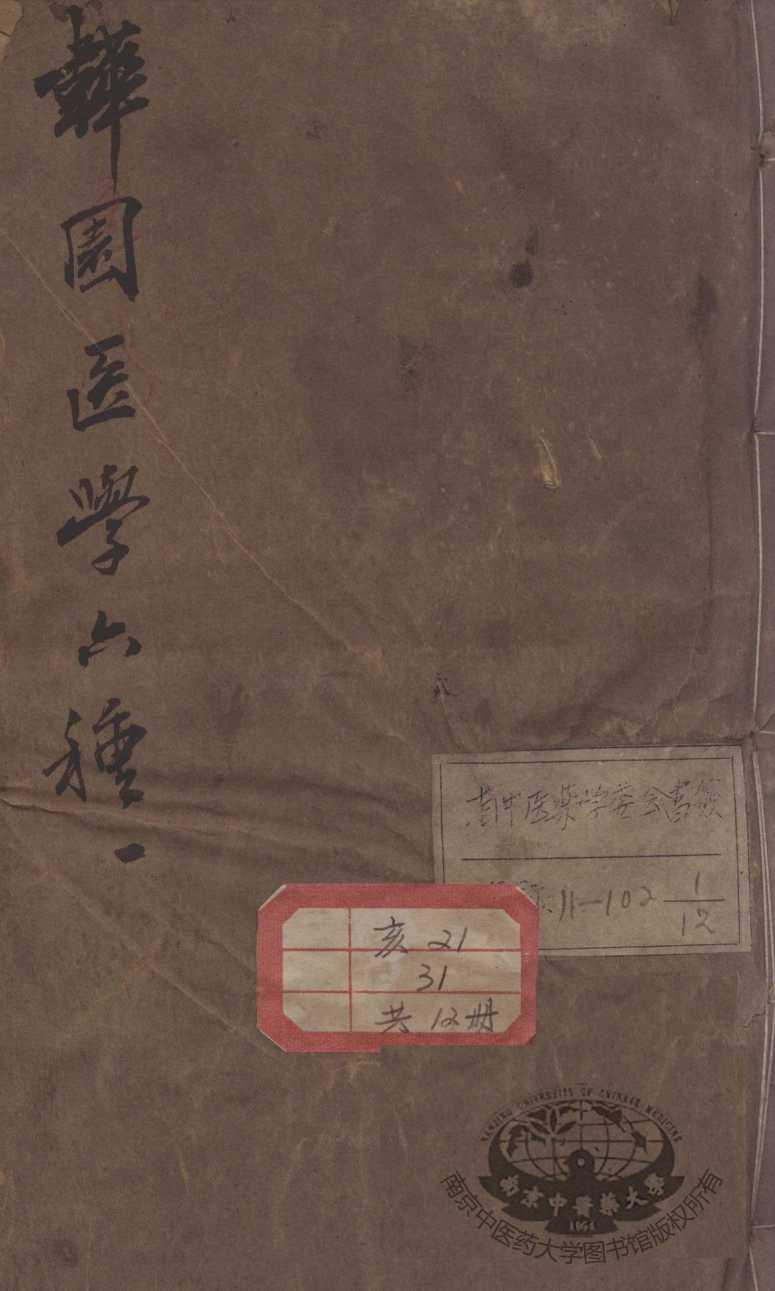 韡園医學六種 一
中医药学委会書籤
11—102 1/12
亥 21
31
共 12 册
NANJING UNIVERSITY OF CHINESE MEDICINE
南京中醫藥大學
1954
南京中医药大学图书馆版权所有